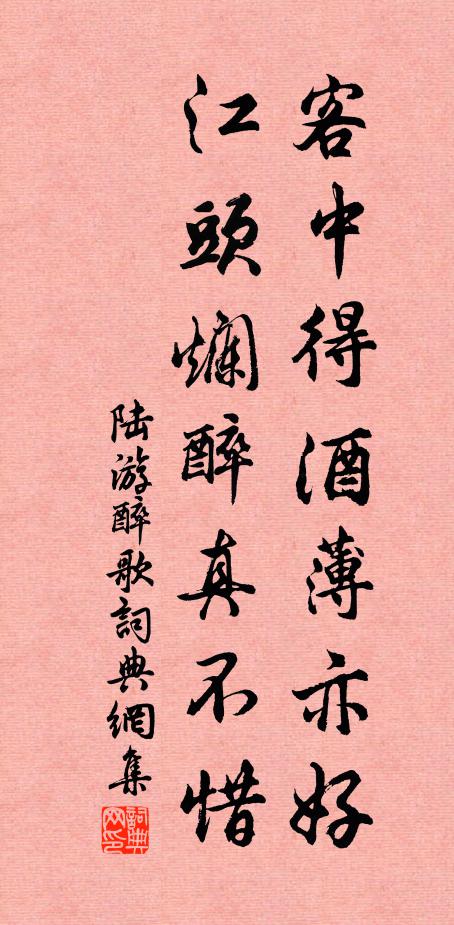 客中得酒薄亦好
江頭爛醉真不惜
陆游醉歌詞典網集
詞典网印